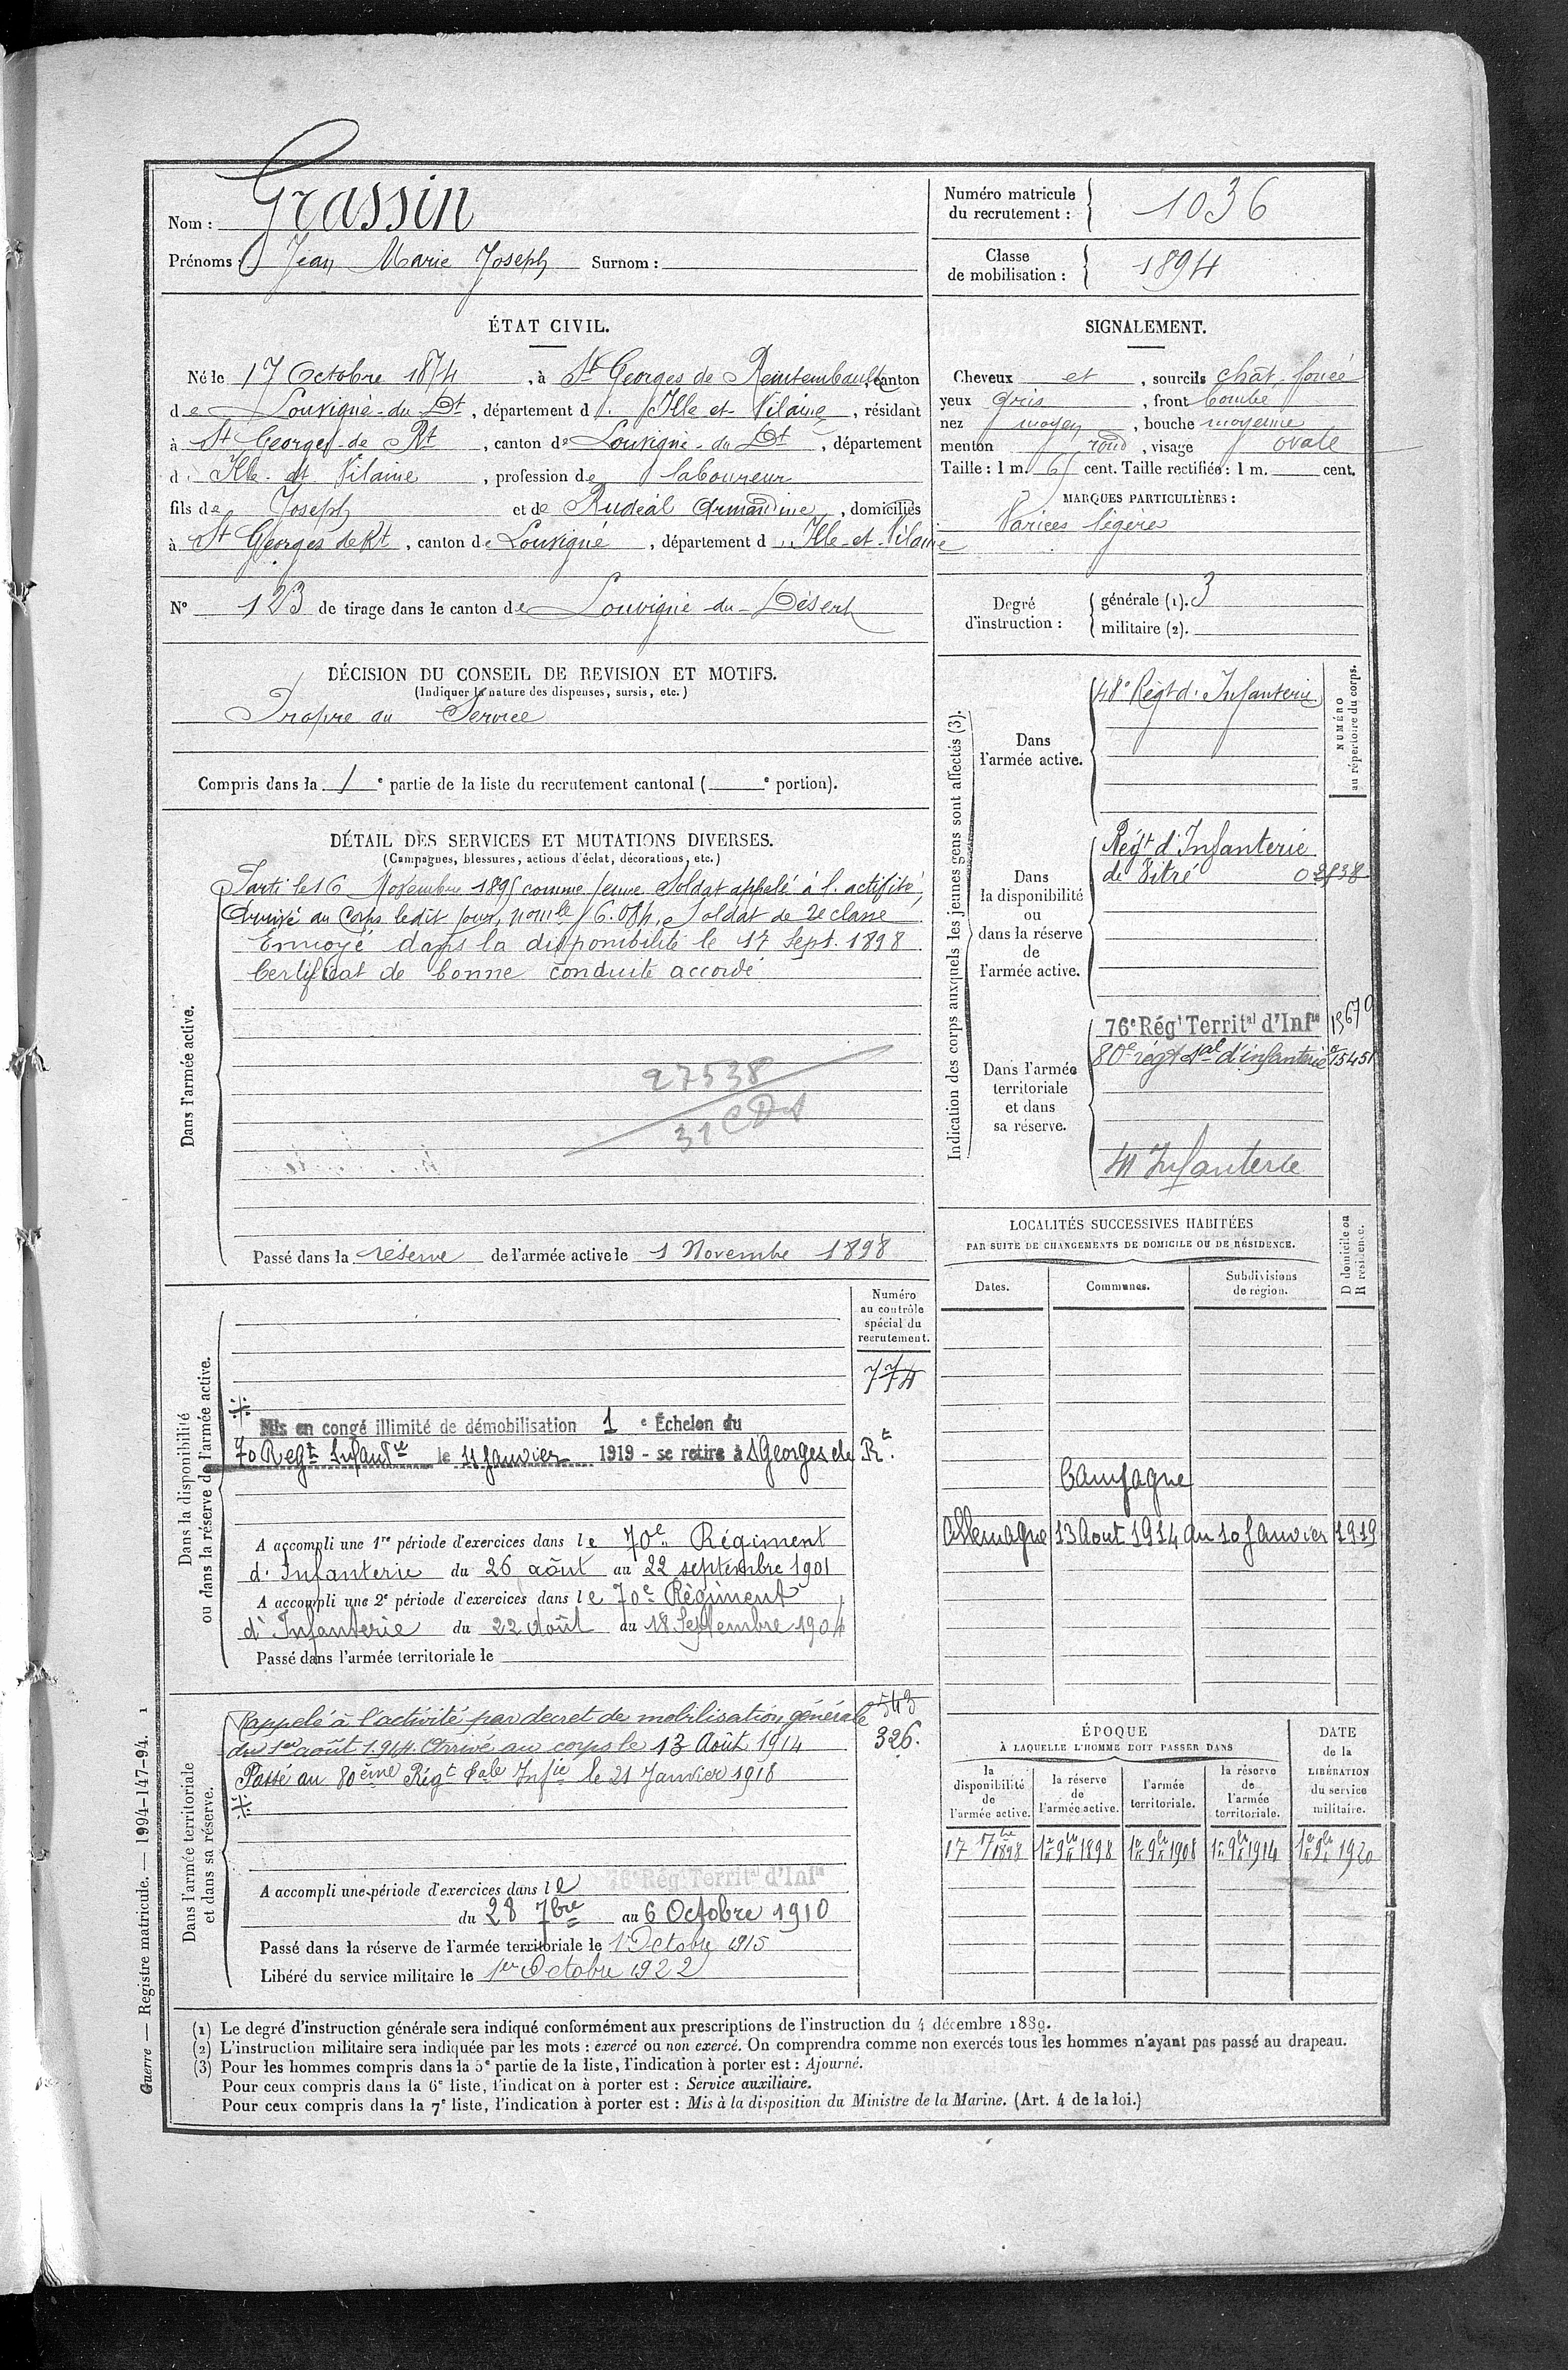 Nom : Grassin
Prénoms : Jean Marie Joseph Surnom :
Numéro matricule du recrutement : 1036
Classe de mobilisation : 1894
ÉTAT CIVIL.
Né le 17 Octobre 1874, à St Georges de Reintembault, canton
de Louvigné-du-Dt, département d. Ille et Vilaine, résidant
à St Georges-de Rt, canton de Louvigné-du Dt, département
d. Ille-et Vilaine, profession de laboureur
fils de Joseph et de Rudéal Armandine, domiciliés
à St Georges de Rt, canton de Louvigné, département d. Ille-et-Vilaine
N° 123 de tirage dans le canton de Louvigné-du-Désert
SIGNALEMENT.
Cheveux et, sourcils chât. foncé
yeux gris, front bombé
nez moyen, bouche moyenne
menton rond, visage ovale
Taille : 1 m. 65 cent. Taille rectifiée : 1 m. cent.
MARQUES PARTICULIÈRES :
Varices légères
Degré d'instruction : générale (1). 3
militaire (2).
DÉCISION DU CONSEIL DE REVISION ET MOTIFS.
(Indiquer la nature des dispenses, sursis, etc.)
Propre au Service
Compris dans la 1e partie de la liste du recrutement cantonal ( e portion).
DÉTAIL DES SERVICES ET MUTATIONS DIVERSES.
(Campagnes, blessures, actions d'éclat, décorations, etc.)
Dans l'armée active.
Parti le 16 Novembre 1895 comme jeune Soldat appelé à l'activité,
Arrivé au Corps ledit jour, Soldat de 2e classe
Envoyé dans la disponibilité le 17 Sept. 1898
Certificat de bonne conduite accordé
27538
31
Passé dans la réserve de l'armée active le 1 Novembre 1898
Indication des corps auxquels les jeunes gens sont affectés (3).
NUMÉRO au répertoire du corps.
Dans l'armée active.
48e Régt d'Infanterie
Dans la disponibilité ou dans la réserve de l'armée active.
Régt d'Infanterie
de Vitré
Dans l'armée territoriale et dans sa réserve.
76e Régt Territal d'Infie 13679
80e régt tal d'infanterie 15451
Infanterie
LOCALITÉS SUCCESSIVES HABITÉES
PAR SUITE DE CHANGEMENTS DE DOMICILE OU DE RÉSIDENCE.
Dates. Communes. Subdivisions de région. D domicile ou R résidence.
Campagne
Allemagne 13 Aout 1914 au 10 Janvier 1919
Dans la disponibilité ou dans la réserve de l'armée active.
Numéro au contrôle spécial du recrutement.
774
Mis en congé illimité de démobilisation 1e Échelon du
70 Regt Infantie le 11 Janvier 1919 - se retire à St Georges de Rt.
A accompli une 1re période d'exercices dans le 70e Régiment
d'Infanterie du 26 août au 22 septembre 1901
A accompli une 2e période d'exercices dans le 70e Régiment
d'Infanterie du 22 Août au 18 Septembre 1904
Passé dans l'armée territoriale le
Dans l'armée territoriale et dans sa réserve.
Rappelé à l'activité par decret de mobilisation générale
du 1er août 1914. Arrivé au corps le 13 Août 1914
Passé au 80ème Régt tale Infie le 21 Janvier 1918
543
326.
A accompli une période d'exercices dans le 76e Régt Territal d'Infie
du 28 7bre au 6 Octobre 1910
Passé dans la réserve de l'armée territoriale le 1 Octobre 1915
Libéré du service militaire le 1er Octobre 1922
ÉPOQUE
À LAQUELLE L'HOMME DOIT PASSER DANS
la disponibilité de l'armée active. la réserve de l'armée active. l'armée territoriale. la réserve de l'armée territoriale.
DATE de la LIBÉRATION du service militaire.
17 7bre 1898 1er 9bre 1898 1er 9bre 1908 1er 9bre 1914 1er 9bre 1920
(1) Le degré d'instruction générale sera indiqué conformément aux prescriptions de l'instruction du 4 décembre 1889.
(2) L'instruction militaire sera indiquée par les mots : exercé ou non exercé. On comprendra comme non exercés tous les hommes n'ayant pas passé au drapeau.
(3) Pour les hommes compris dans la 5e partie de la liste, l'indication à porter est : Ajourné.
Pour ceux compris dans la 6e liste, l'indication à porter est : Service auxiliaire.
Pour ceux compris dans la 7e liste, l'indication à porter est : Mis à la disposition du Ministre de la Marine. (Art. 4 de la loi.)
Guerre — Registre matricule. — 1994-147-94. 1